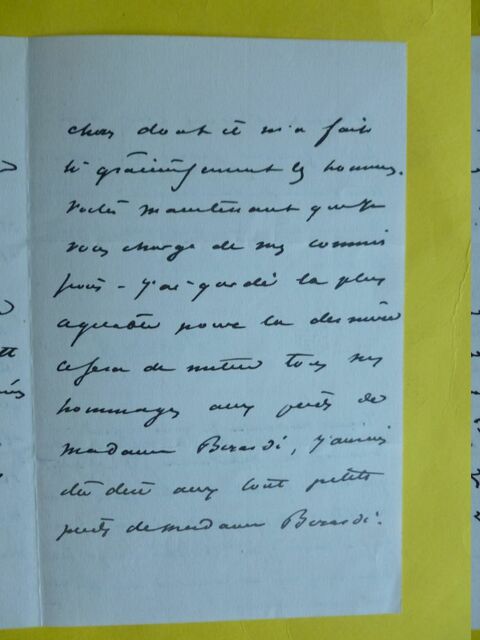 chez dont il m'a fait
si gracieusement les honneurs.
Voilà maintenant que je
vous charge de mes commis
sions - j'ai gardé la plus
agréable pour la dernière
ce sera de mettre tous mes
hommages aux pieds de
madame Berardi, j'aurais
dû dire aux tout petits
pieds de madame Berardi.